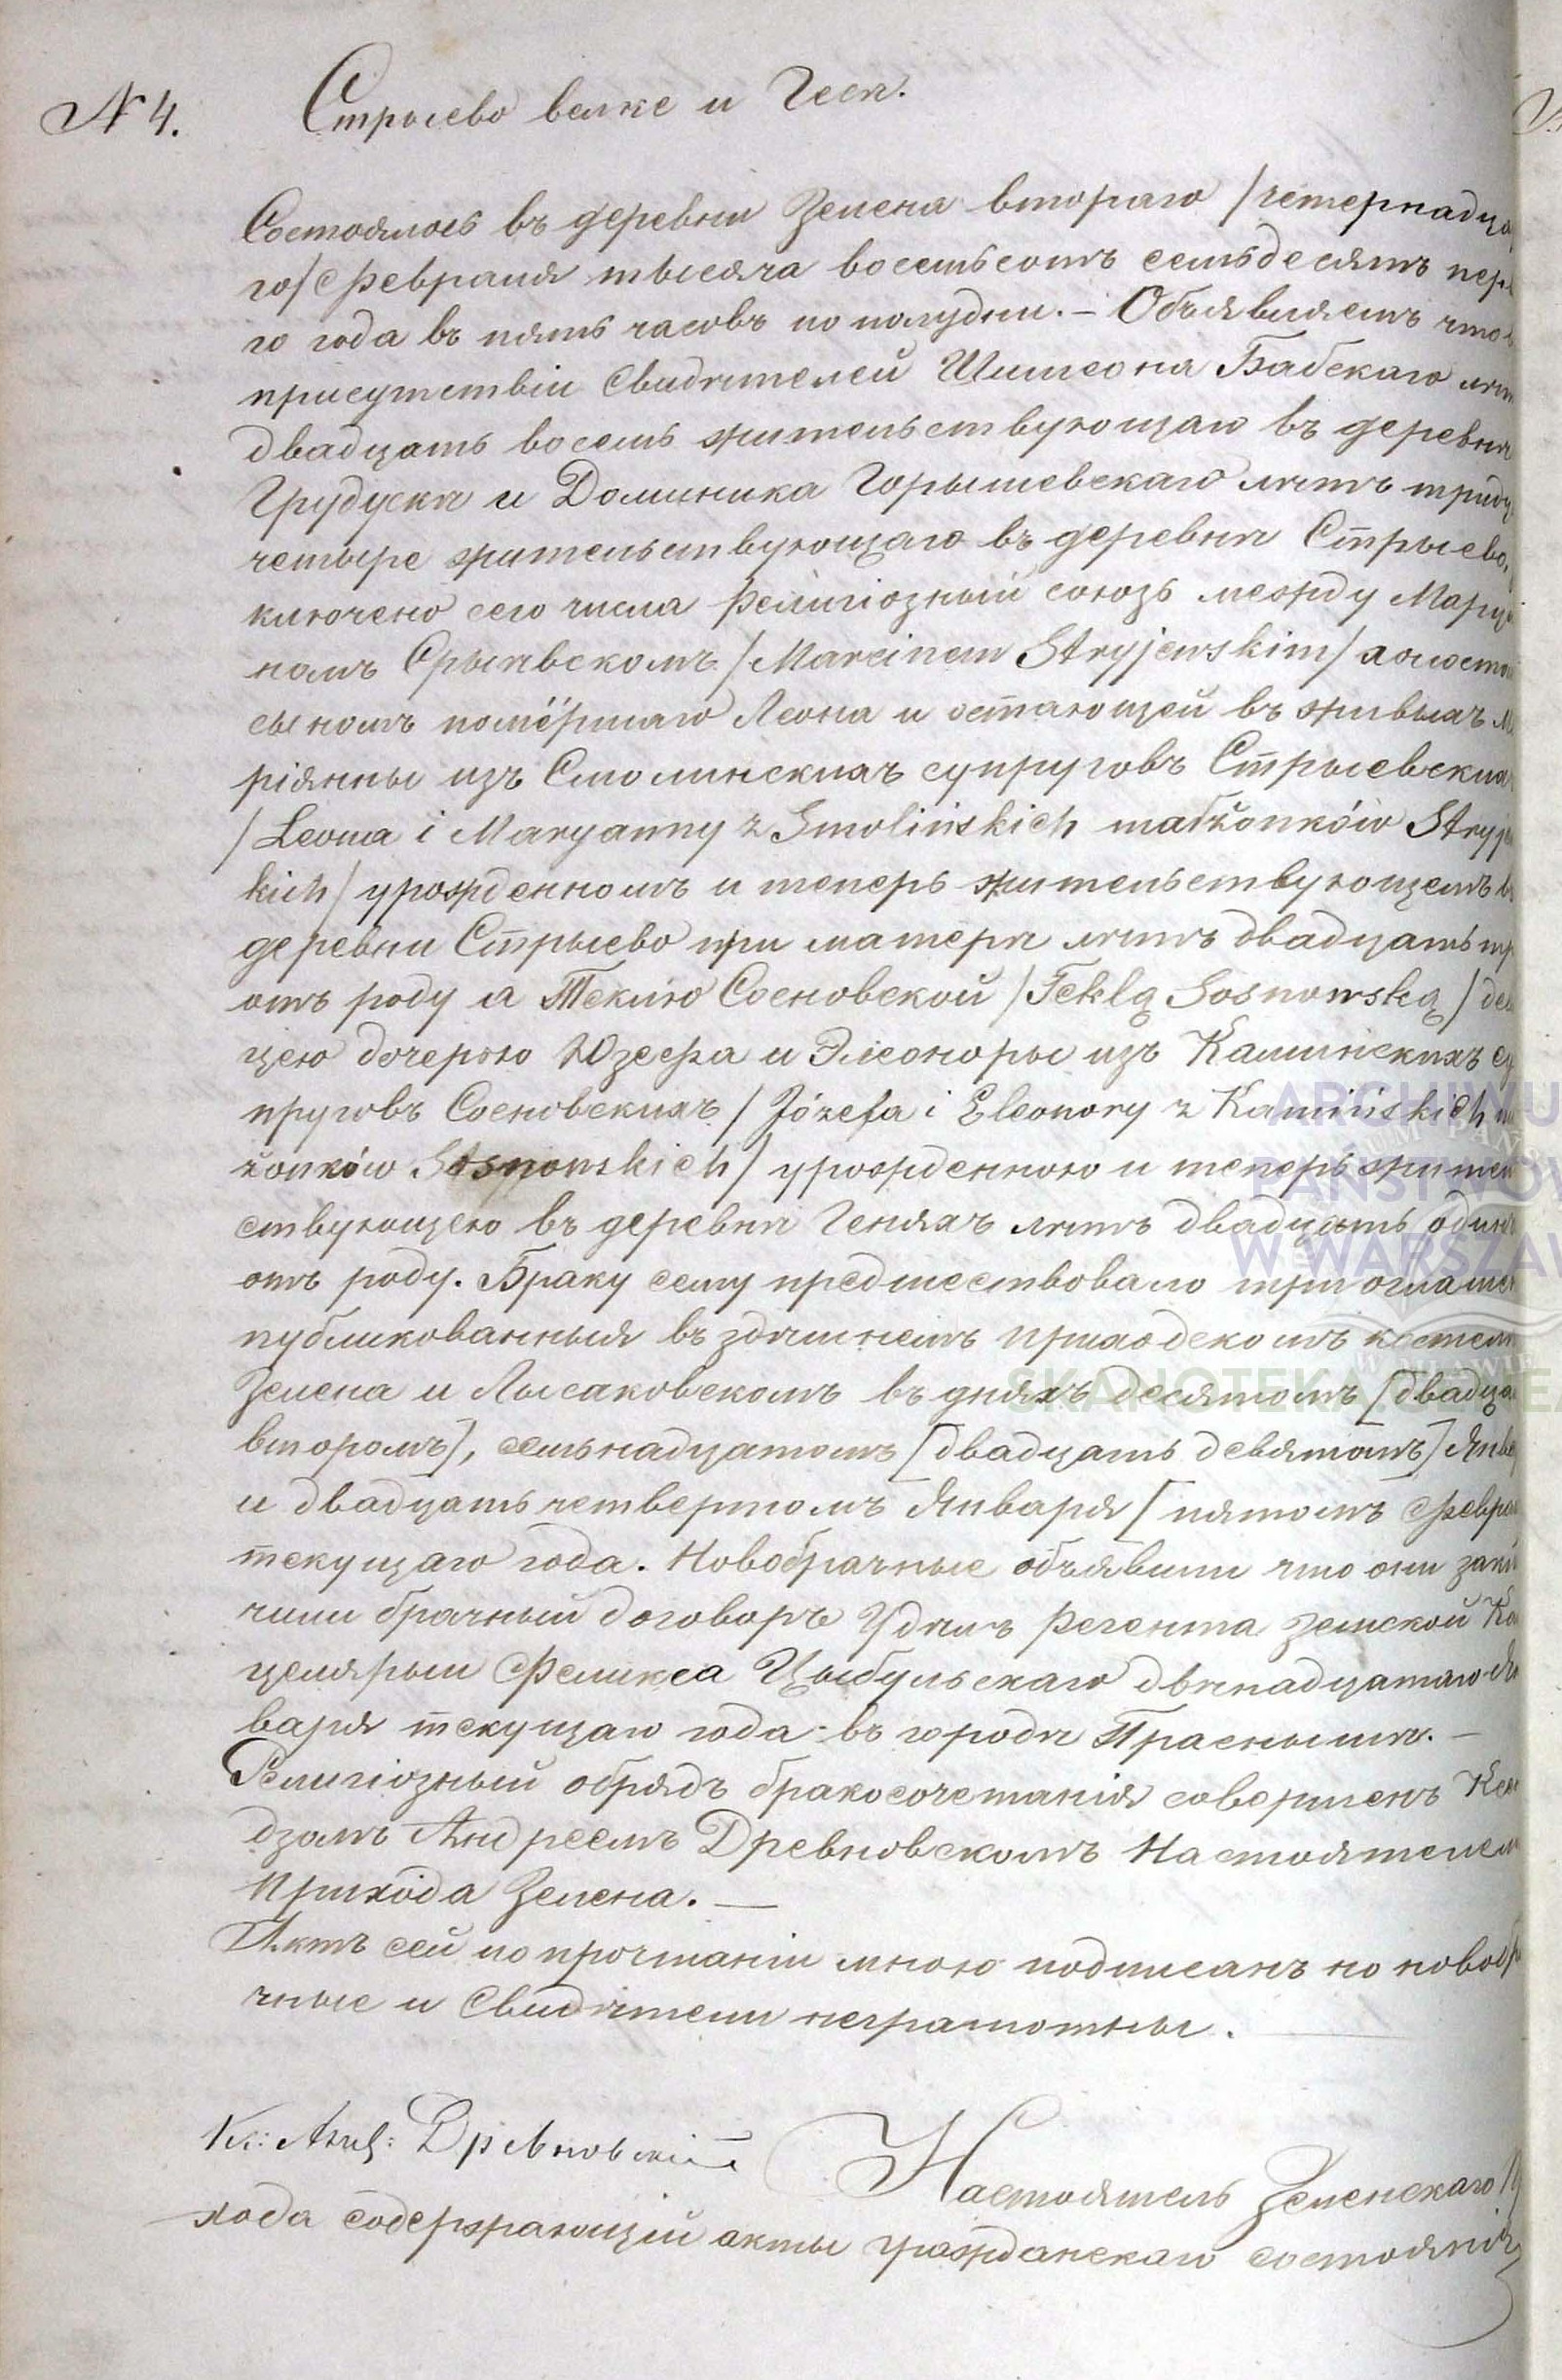 N 4.
Стрыево велке и Геск.
Состоялось въ деревни Зелена втораго /четернадца
го/ февраля тысяча восемьсотъ семьдесятъ пер
го года въ пять часовъ по полудни. – Объявляемъ что
присутствіи свидѣтелей Шимеона Бабскаго лѣт
двадцать восемь жительствующаго въ деревнѣ
Грудускѣ и Доминика Горышевскаго лѣтъ тридц
четыре жительствующаго въ деревнѣ Стрыево,
ключено сего числа религіозный союзъ между Марц
номъ Срыѣвскомъ /Marcinem Stryjewskim/ холосто
сыномъ помёршаго Леона и остающей въ живыхъ М
ріянны изъ Смолинскихъ супруговъ Стрыевских
/Leona i Maryanny z Smolińskich małżonków Stryje
kich/ урожденномъ и теперь жительствующемъ в
деревни Стрыево при матери лѣтъ двадцать тр
отъ роду а Теклю Сосновской /Teklą Sosnowską/ дѣв
цею дочерью Юзефа и Элеоноры изъ Каминскихъ су
пруговъ Сосновскихъ /Józefa i Eleonory z Kamińskich m
żonków Sosnowskich/ урожденною и теперь жител
ствующею въ деревнѣ Геняхъ лѣтъ двадцать одинъ
отъ роду. Браку сему предшествовало три оглашен
публикованныя въ здѣшнемъ приходскомъ костелѣ
Зелена и Лысаковскомъ въ дняхъ десятомъ [двадца
второмъ], семьнадцатомъ [двадцать девятомъ] Янва
и двадцать четвертомъ Января [пятомъ Февра
текущаго года. Новобрачные объявили что они заклю
чили брачный договоръ Удѣлъ Регента Земской Ка
целярыи Феликса Цыбульскаго двѣнадцатаго Ян
варя текущаго года въ городѣ Праснышѣ. –
Религіозный обрядъ бракосочетанія совершенъ Ксен
дзомъ Андреемъ Древновскомъ Настоятелем
Прихода Зелена. —
Актъ сей по прочтаніи мною подписанъ но новобра
чные и свидѣтели неграмотны.
Кс: Анд: Древновскій
Настоятель Зеленскаго П
хода содержающій акты гражданскаго состоянія
ARCHIWU
PAŃSTWOW
W WARSZAW
SKANOTEKA